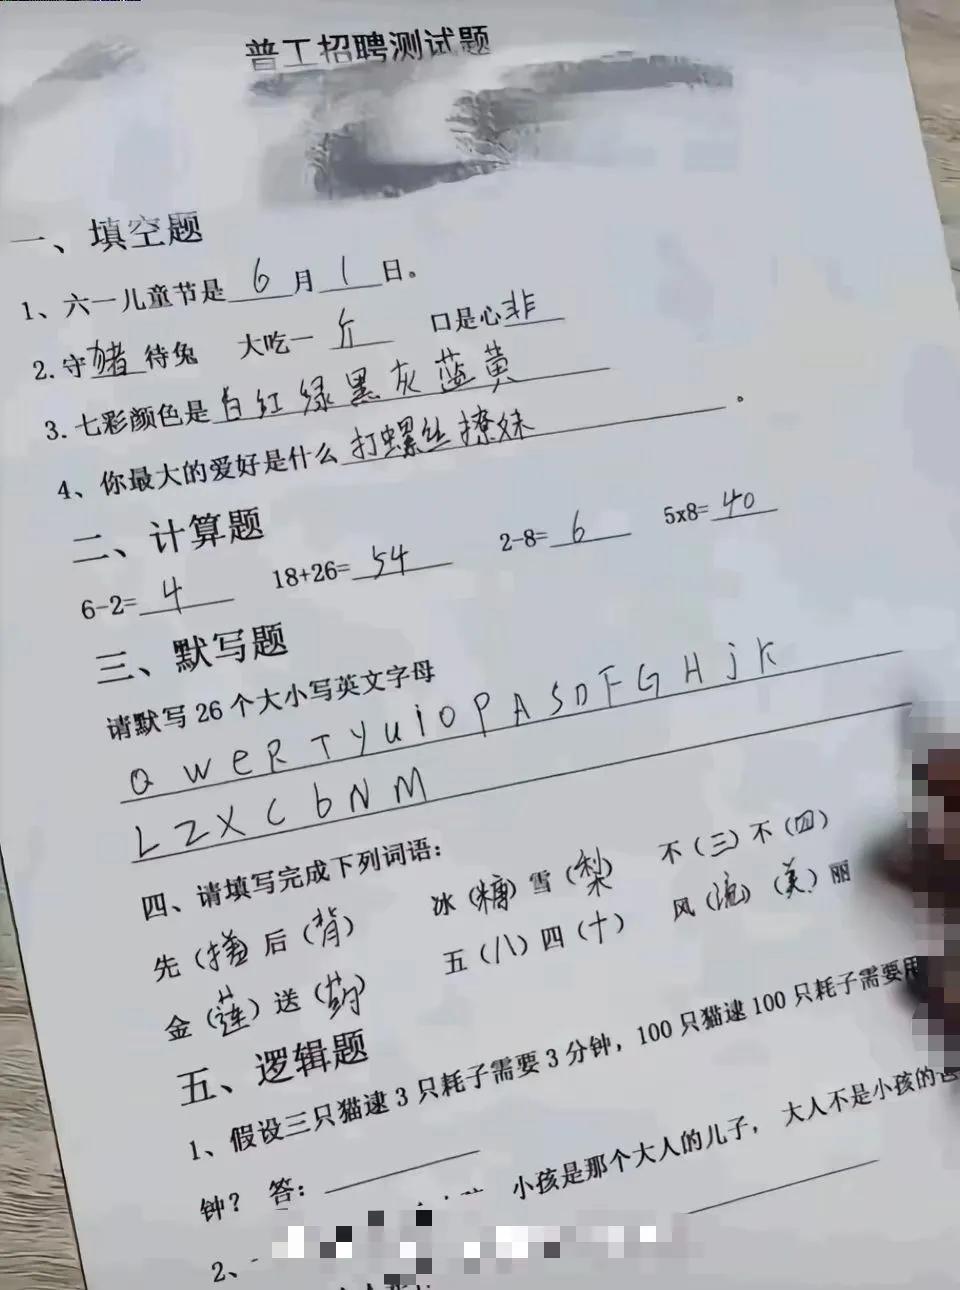 普工招聘测试题
一、填空题
1、六一儿童节是 6 月 1 日。
2.守猪待兔 大吃一斤 口是心非
3.七彩颜色是白红绿黑灰蓝黄
4、你最大的爱好是什么打螺丝撩妹。
二、计算题
6-2=4 18+26=54 2-8=6 5x8=40
三、默写题
请默写 26 个大小写英文字母
Q W e R T y u i O P A S D F G H j K
L Z X C b N M
四、请填写完成下列词语：
先（搂）后（背） 冰（糖）雪（梨） 不（三）不（四）
金（莲）送（药） 五（八）四（十） 风（流）（美）丽
五、逻辑题
1、假设三只猫逮 3 只耗子需要 3 分钟，100 只猫逮 100 只耗子需要用
钟？ 答：
2、 小孩是那个大人的儿子， 大人不是小孩的爸